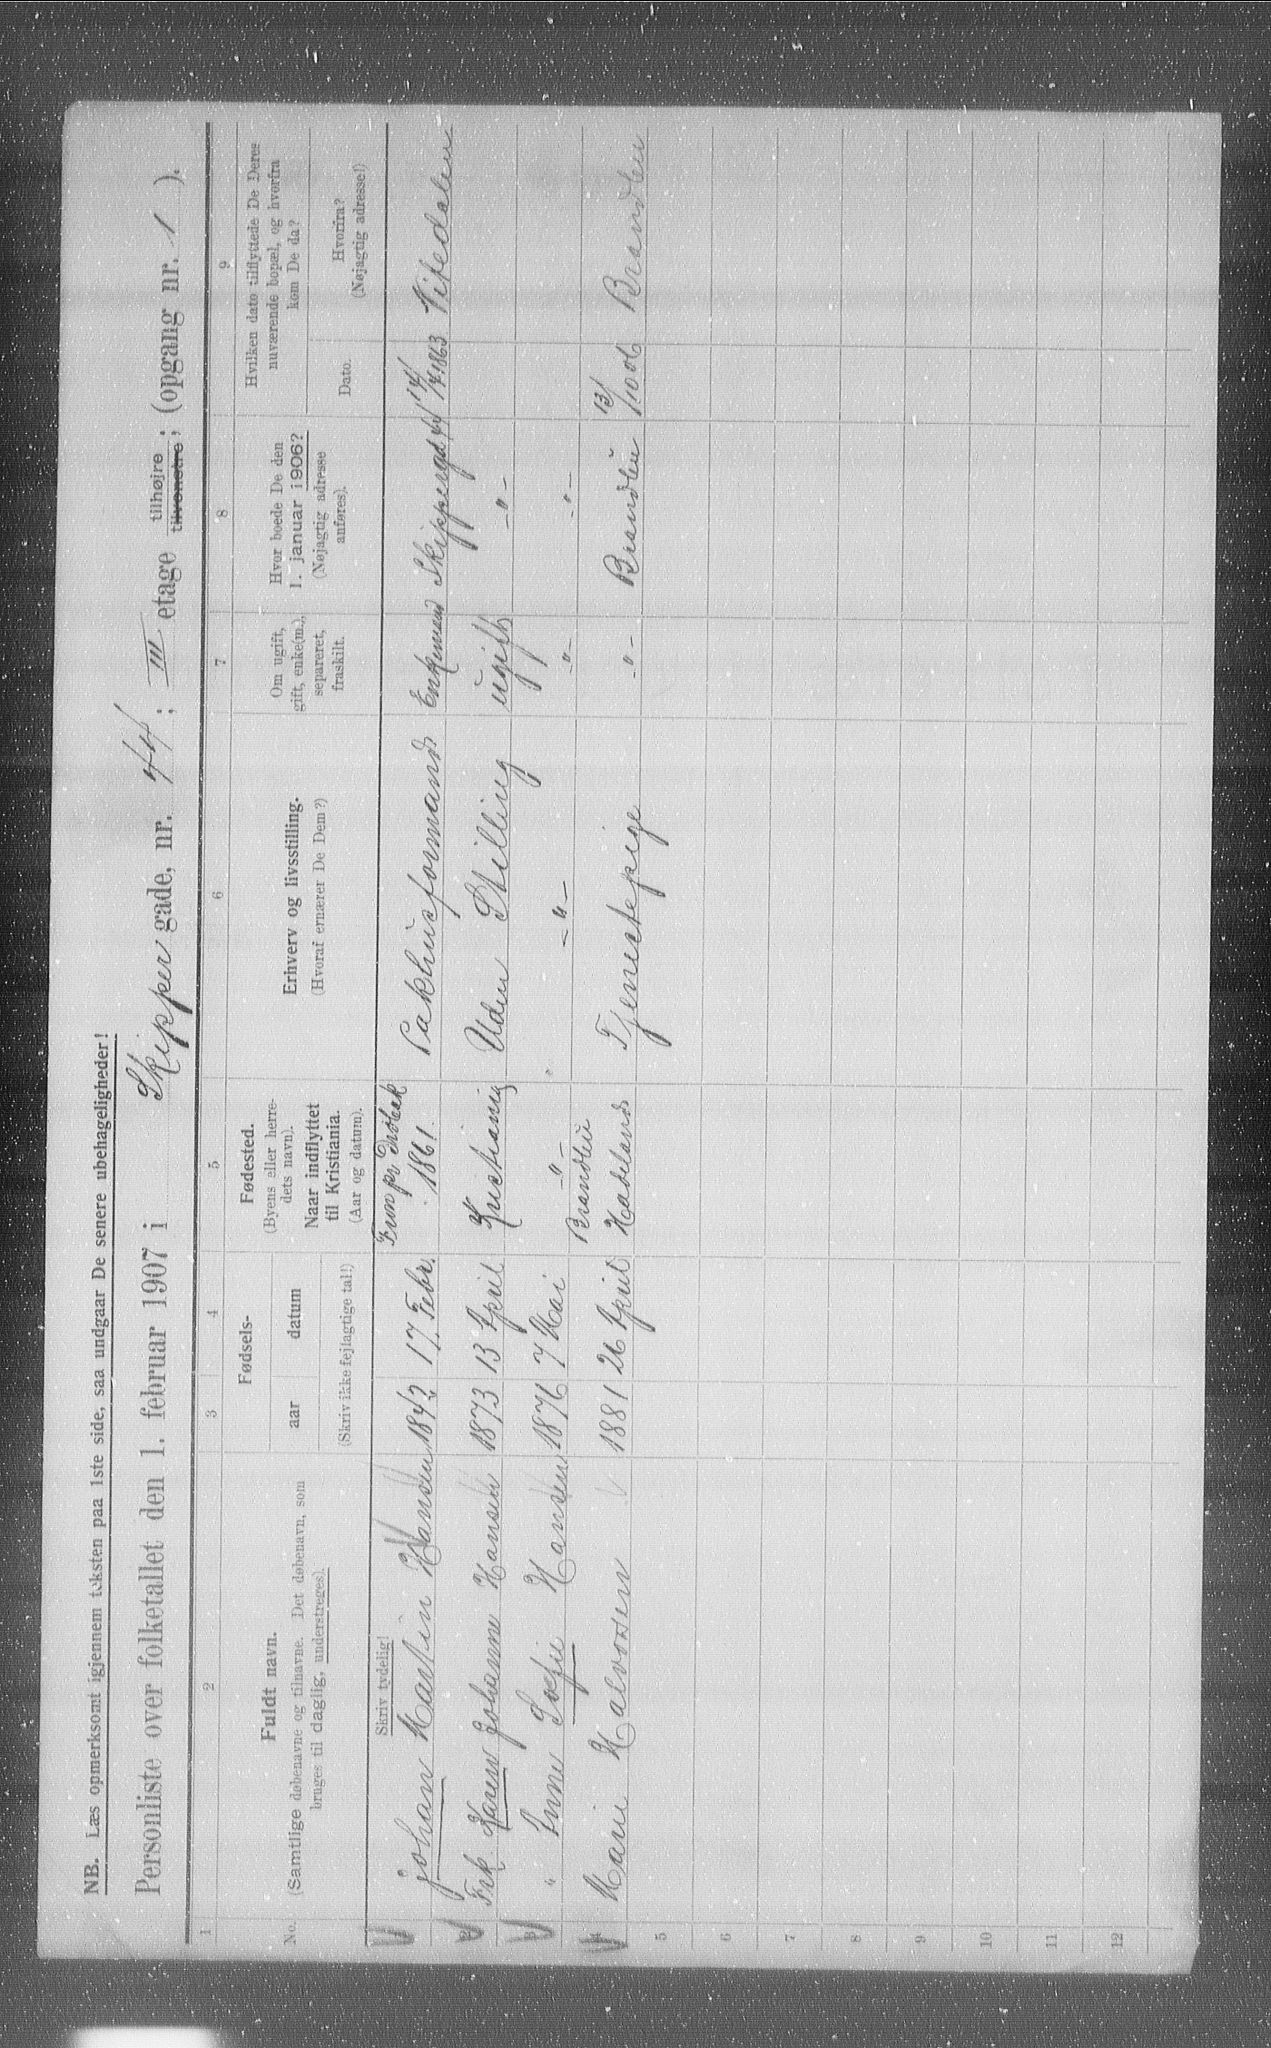 NB. Læs opmerksomt igjennem teksten paa 1ste side, saa undgaar De senere ubehageligheder!
Personliste over folketallet den 1. februar 1907 i Skipper gade, nr. 44; III etage tilhøjre tilvenstre; (opgang nr. 1).
1 2 3 4 5 6 7 8 9
No.
Fuldt navn.
(Samtlige døbenavne og tilnavne. Det døbenavn, som
bruges til daglig, understreges).
Skriv tydelig!
Fødsels-
aar datum
(Skriv ikke fejlagtige tal!)
Fødested.
(Byens eller herre-
dets navn).
Naar indflyttet
til Kristiania.
(Aar og datum).
Erhverv og livsstilling.
(Hvoraf ernærer De Dem?)
Om ugift,
gift, enke(m.),
separeret,
fraskilt.
Hvor boede De den
1. januar 1906?
(Nøjagtig adresse
anføres).
Hvilken dato tilflyttede De Deres
nuværende bopæl, og hvorfra
kom De da?
Dato.
Hvorfra?
(Nøjagtig adresse!)
Johan Martin Hansen 1842 17. Febr. 1861. Pakhusformand Enkemand 1863
2 Frk. Karen Johanne Hansen 1873 13 April Kristiania Uden Stilling ugift -"-
3 " Anne Sofie Hansen 1876 7 Mai -"- -"- -"- -"-
4 Marie Halvorsen 1881 26 April Brandbu Hadeland Tjenestepige -"- Brandbu 13/10 06 Brandbu
5
6
7
8
9
10
11
12